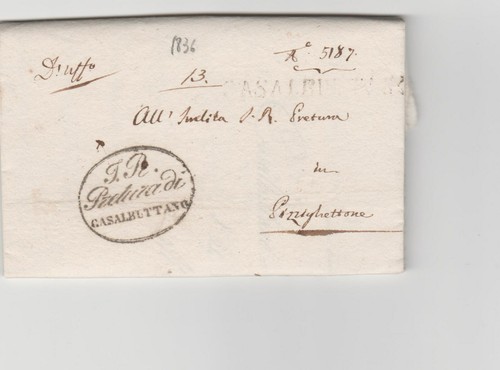 1836
N.º 5187.
D'uffo
13.
CASALBUTTANO
All' Inclita I. R. Pretura
in
Pizzighettone
I. R.
Pretura di
CASALBUTTANO